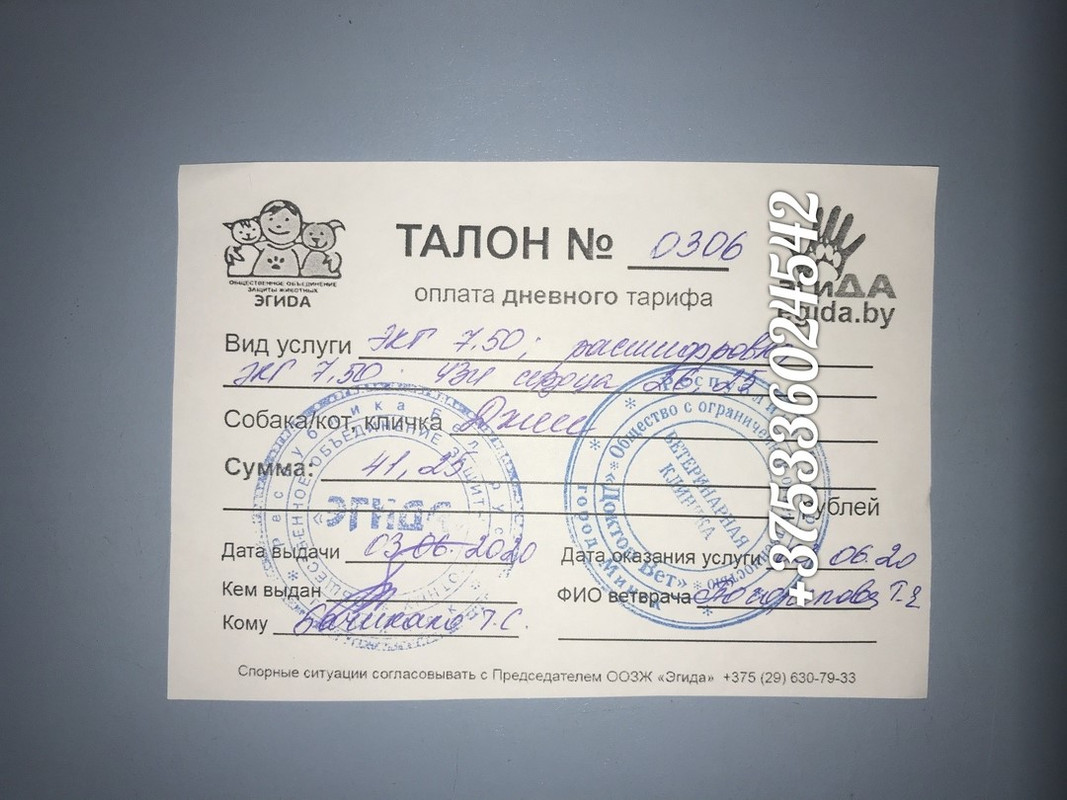 ТАЛОН № 0306
оплата дневного тарифа
ОБЩЕСТВЕННОЕ ОБЪЕДИНЕНИЕ
ЗАЩИТЫ ЖИВОТНЫХ
ЭГИДА
ЭгиДА
egida.by
+375336024542
Вид услуги ЭКГ 7.50; расшифровка
ЭКГ 7,50. УЗИ сердца 26,25
Собака/кот, кличка Джесс
Сумма: 41,25
рублей
Дата выдачи 03.06.2020
Дата оказания услуги 06.20
Кем выдан
ФИО ветврача
Кому
«ЭГИДА»
Общество с ограниченной
ВЕТЕРИНАРНАЯ
КЛИНИКА
«Доктор Вет»
город Минск
Спорные ситуации согласовывать с Председателем ООЗЖ «Эгида» +375 (29) 630-79-33